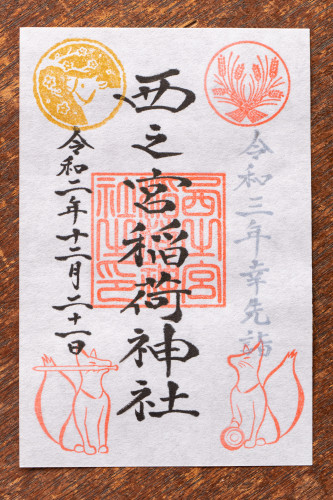 令和三年幸先詣
西之宮稲荷神社
西之宮
社之印
令和二年十二月二十一日